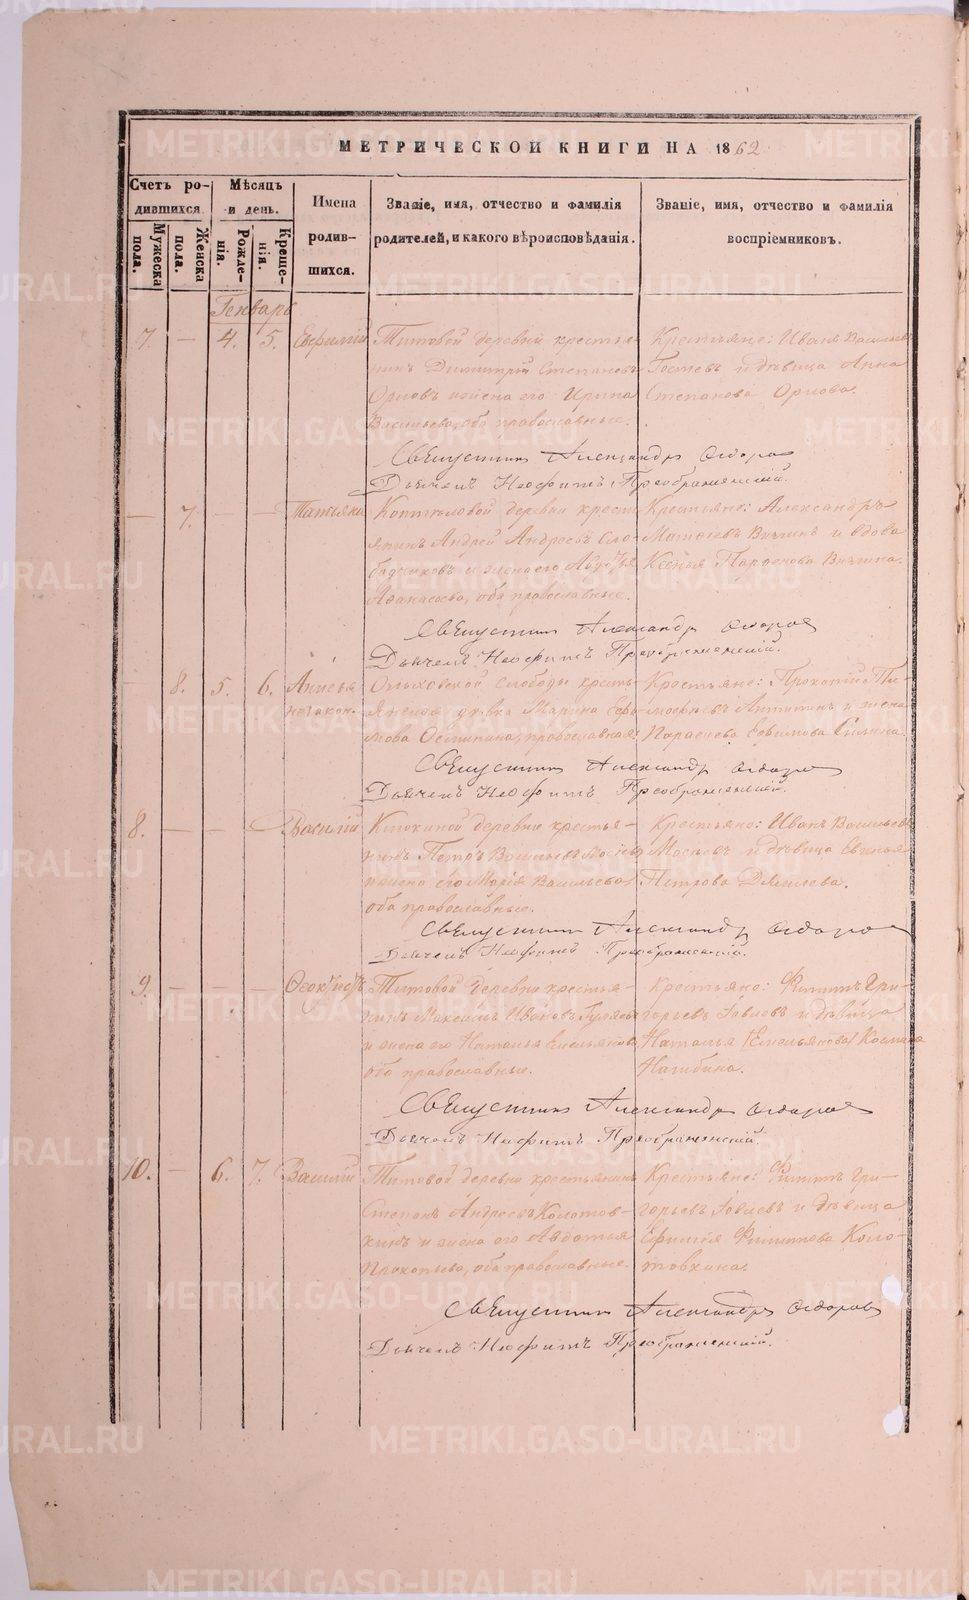 МЕТРИЧЕСКОЙ КНИГИ НА 1862
Счетъ родившихся.
Мѣсяцъ и день.
Имена родившихся.
Званіе, имя, отчество и фамилія родителей, и какого вѣроисповѣданія.
Званіе, имя, отчество и фамилія воспріемниковъ.
Мужеска пола.
Женска пола.
Рожденія.
Крещенія.
Генварь
7. — 4. 5. Евфимій
Титовой деревни крестья-
нинъ Димитрій Степановъ
Орловъ и жена его Ирина
Васильева, оба православные.
Крестьяне: Иванъ Васильевъ
и дѣвица Анна
Степанова Орлова.
Священникъ Александръ
Дьячекъ Неофитъ Преображенскій.
— 7. — — Татьяна
деревни кресть-
янинъ Андрей Андреевъ Сло-
бодчиковъ и жена его
Аѳанасьева, оба православные.
Крестьяне: Александръ
и вдова
Ксенья Парфенова
Священникъ Александръ
Дьячекъ Неофитъ Преображенскій.
— 8. 5. 6. Анисья
незакон.
Ольховской Слободы кресть-
янская дѣвка Марина
православная.
Крестьяне: Прокопій
и жена
Евфимова
Священникъ Александръ
Дьячекъ Неофитъ Преображенскій.
8. — — — Василій
деревни крестья-
нинъ Петръ Васильевъ
и жена его Марія Васильева
оба православные.
Крестьяне: Иванъ Васильевъ
и дѣвица
Петрова
Священникъ Александръ
Дьячекъ Неофитъ Преображенскій.
9. — — — Ѳеоктистъ
Титовой деревни крестья-
нинъ Максимъ Ивановъ
и жена его Наталья Емельянова
оба православные.
Крестьяне: Филиппъ Гри-
горьевъ и дѣвица
Наталья Емельянова
Нагибина.
Священникъ Александръ
Дьячекъ Неофитъ Преображенскій.
10. — 6. 7. Василій
Титовой деревни крестьянинъ
Степанъ Андреевъ Колотов-
кинъ и жена его Авдотья
Прокопьева, оба православные.
Крестьяне: Филиппъ Гри-
горьевъ и дѣвица
Филиппова Коло-
товкина.
Священникъ Александръ
Дьячекъ Неофитъ Преображенскій.
METRIKI.GASO-URAL.RU